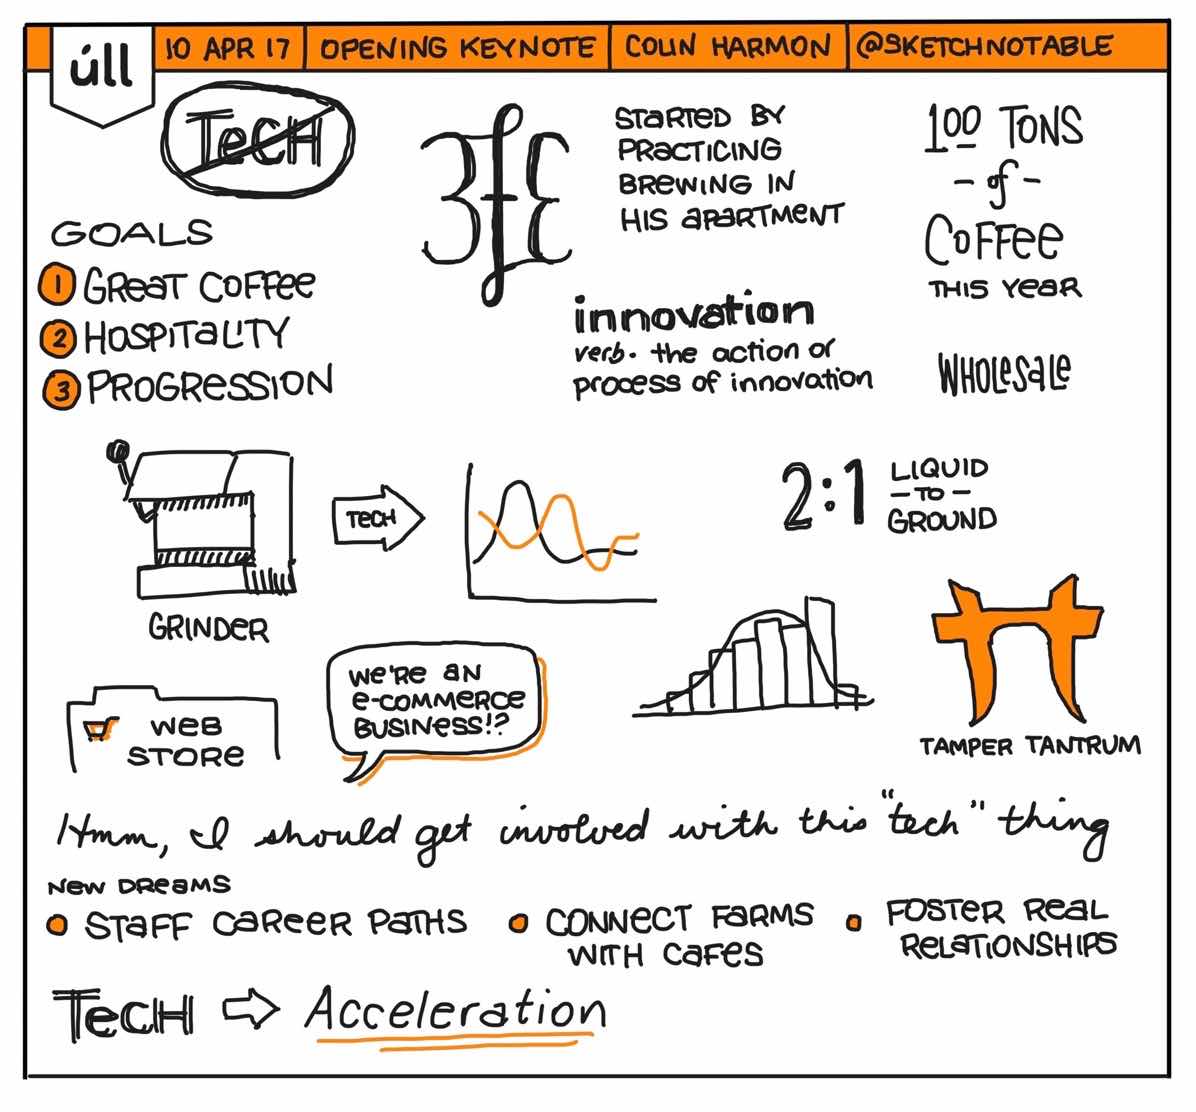 úll
10 APR 17
OPENING KEYNOTE
COLIN HARMON
@SKETCHNOTABLE
TeCH
3fE
STaRTeD BY
PRaCTICING
BReWING IN
HIS aPaRTMeNT
100 TONS
- of -
COFFee
THIS YeaR
WHOLeSaLe
GOALS
1 GReaT COFFee
2 HOSPITaLITY
3 PROGReSSION
innovation
verb. the action or
process of innovation
TeCH
GRINDeR
2:1
LIQUID
- TO -
GROUND
We'Re aN
e-COMMeRCe
BUSINeSS!?
WeB
STORe
TAMPER TANTRUM
Hmm, I should get involved with this "tech" thing
NeW DReaMS
STaFF CaReeR PaTHS
CONNeCT FaRMS
WITH CaFeS
FOSTeR ReaL
ReLaTIONSHIPS
TeCH
Acceleration